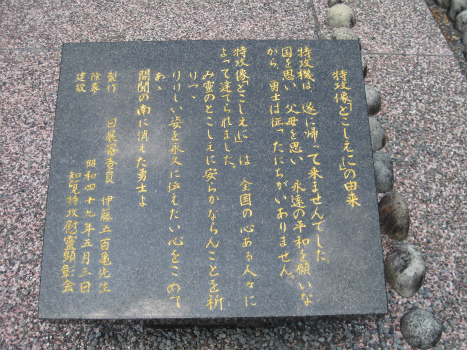 特攻像「とこしえに」の由来
特攻機は 遂に帰って来ませんでした
国を思い 父母を思い 永遠の平和を願いな
がら、勇士は征ったにちがいありません
特攻像「とこしえに」は 全国の心ある人々に
よって建てられました。
み霊のとこしえに安らかならんことを祈
りつゝ
りりしい姿を永久に伝えたい心をこめて
あゝ
開聞の南に消えた勇士よ
製作 日展審査員 伊藤五百亀先生
除幕 昭和四十九年五月三日
建設 知覧特攻慰霊顕彰会